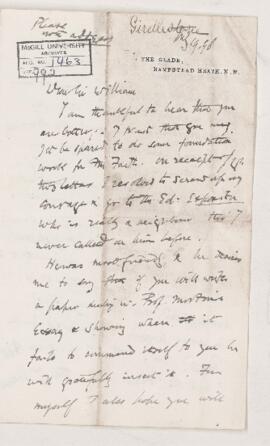 Please
note address
Girdlestone
McGILL UNIVERSITY
ARCHIVES
ACC. NO. 1463
REF. 927
THE GLADE,
HAMPSTEAD HEATH, N.W.
Dear Sir William
I am thankful to hear that you
are better. I trust that you may
be spared to do some foundation
work for the Faith. On receipt of
two letters I resolved to screw up my
courage & go to the Ed: Expositor
who is really a neighbour tho' I
never called on him before.
He was most friendly & he desires
me to say that if you will write
a paper Prof
Essay & showing where it
fails to commend itself to you he
will gratefully insert it. For
myself I also hope you will